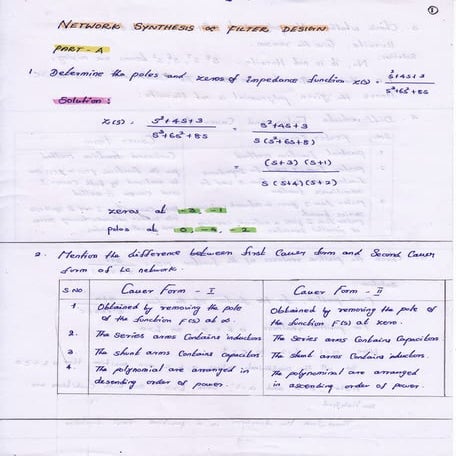 1
NETWORK SYNTHESIS & FILTER DESIGN
PART - A
1. Determine the poles and zeros of impedance function Z(s) = s²+4s+3 / s³+6s²+8s
Solution:
Z(s) = s²+4s+3 / s³+6s²+8s = s²+4s+3 / s(s²+6s+8)
= (s+3)(s+1) / s(s+4)(s+2)
zeros at -3, -1
poles at 0, -4, -2
2. Mention the difference between first Cauer form and Second Cauer
form of LC network.
S NO Cauer Form - I Cauer Form - II
1 Obtained by removing the pole of the function F(s) at ∞. Obtained by removing the pole of the function F(s) at zero.
2. The Series arms Contains inductors The Series arms Contains Capacitors
3 The shunt arms Contains Capacitors The shunt arms Contains inductors.
4 The polynomial are arranged in desending order of power. The polynominal are arranged in ascending order of power.